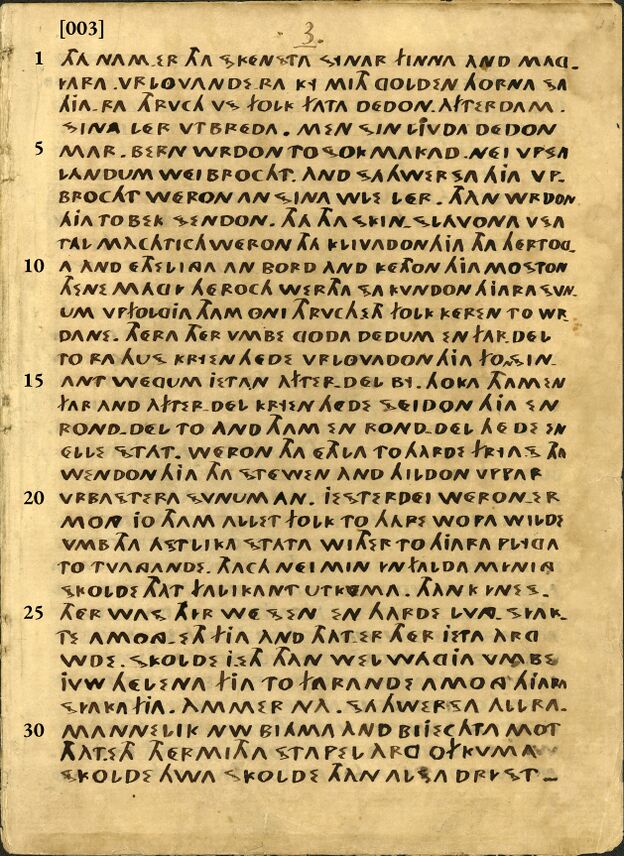 THA NAM-ER THA SKENSTA SYNAR FINNA AND MAG-
JARA .VRLOVANDE.RA KY MITH GOLDEN HORNA SA
HIA-RA THRVCH VS FOLK FATA DEDON.AFTERDAM .
SINA LER VTBREDA . MEN SIN LJVDA DEDON
MAR . BERN WRDON TO SOK MAKAD. NEI VPSA
LANDUM WEI BROCHT. AND SAHWERSA HIA VP-
BROCHT WERON AN SINA WLE LER. THAN WRDON
HIA TO BEK SENDON. THA THA SKIN-SLAVONA VSA
TAL MACHTICH WERON THA KLIVADON HIA THA HERTOG-
A AND ETHELINGA AN BORD AND KETHON HIA MOSTON
THENE MAGI HEROCH WERTHA SA KVNDON HIARA SVN-
UM VPFOLGJA THAM ONI THRVCHET FOLK KEREN TO WR-
DANE. THERA THER VMBE GODA DEDUM EN FAR-DEL
TO RA HUS KRYEN HEDE VRLOVADON HIA FON SIN-
ANT WEGUM JETAN AFTER-DEL BY. HOKA THAM EN
FAR AND AFTER-DEL KRYEN HEDE SEIDON HIA EN
ROND-DEL TO AND THAM EN ROND-DEL HEDE EN
ELLE STAT. WERON THA ETHLA TO HARDE FRYAS THA
WENDON HIA THA STEWEN AND HILDON VPPAR
VRBASTERA SVNUM AN. JESTERDEI WERON-ER
MONG JO THAM ALLET FOLK TO HAPE WOPA WILDE
VMB THA ASTLIKA STATA WITHER TO HJARA PLYGA
TO TVANGANDE. THACH NEI MIN JNFALDA MJNING
SKOLDE THAT FALIKANT UTKVMA. THANK JNES-
THER WAS THJR WESEN EN HARDE LVNG-SJAK-
TE AMONG-ETH FJA AND THAT-ER THER JETA ARG
WDE. SKOLDE JETH THAN WEL WAGJA VMBE
JVW HELENA FJA TO FARANDE AMONG HJARA
SJAKA FJA. AMMER NA. SAHWERSA ALLRA-
MANNELIK NW BIJAMA AND BIJECHTA MOT
THATETH THERMITHA STAPEL ARG OFKVMA
SKOLDE HWA SKOLDE THAN ALSA DRJST-
[003]
3.
1
5
10
15
20
25
30